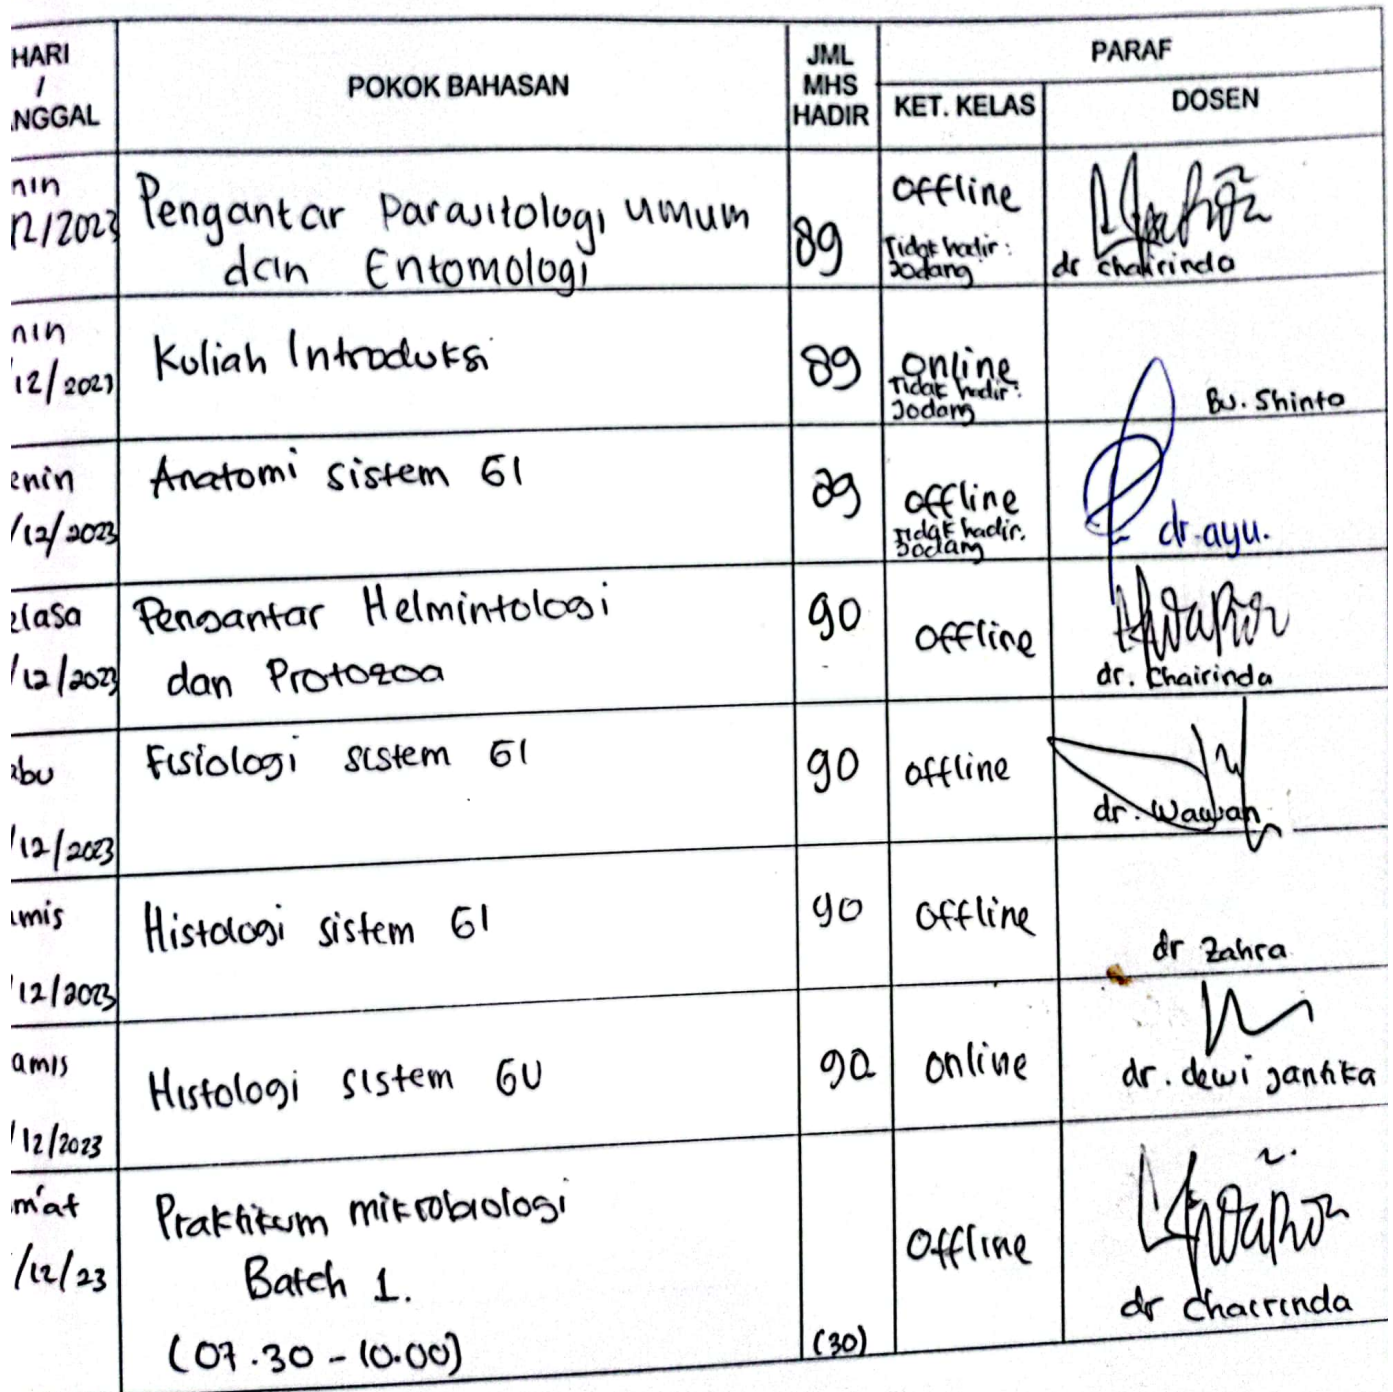 HARI
/
NGGAL
POKOK BAHASAN
JML
MHS
HADIR
PARAF
KET. KELAS
DOSEN
nin
12/2023
Pengantar Parasitologi umum
dan Entomologi
89
offline
Tidak hadir :
Jodang
dr chairinda
nin
12/2023
Kuliah Introduksi
89
online
Tidak hadir :
Jodang
Bu. Shinto
enin
/12/2023
Anatomi sistem GI
89
offline
Tidak hadir.
Jodang
dr. ayu.
elasa
/12/2023
Pengantar Helmintologi
dan Protozoa
90
offline
dr. Chairinda
abu
/12/2023
Fisiologi sistem GI
90
offline
dr. Wawan
amis
12/2023
Histologi sistem GI
90
offline
dr Zahra
amis
/12/2023
Histologi sistem GU
90
online
dr. dewi jantika
m'at
/12/23
Praktikum mikrobiologi
Batch 1.
(07.30 - 10.00)
(30)
Offline
dr Chairinda